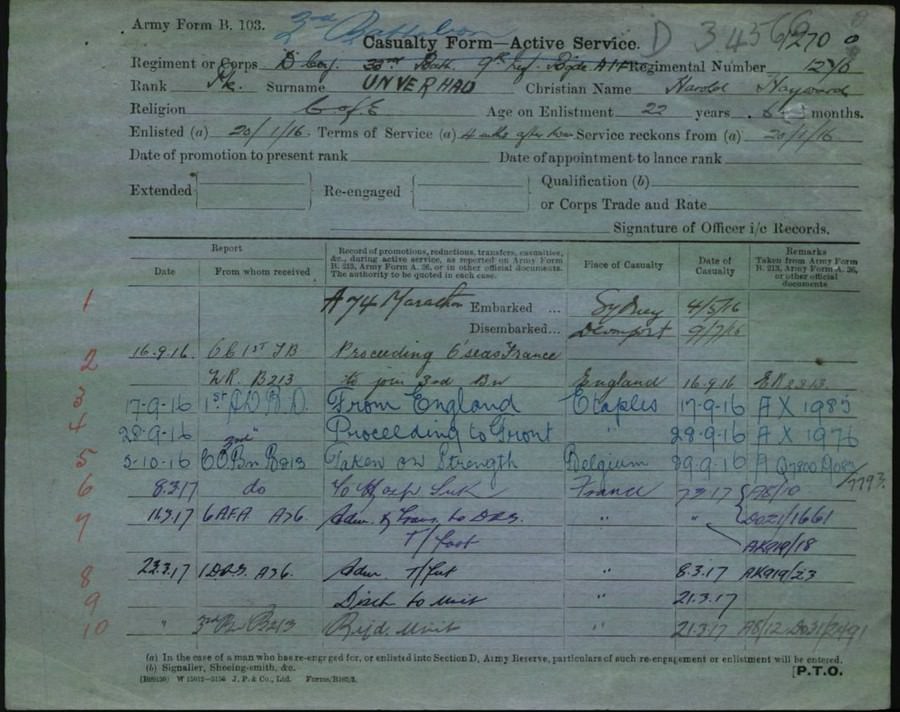 Army Form B. 103. 3rd Battalion D 34566/270
Casualty Form—Active Service.
Regiment or Corps D Coy. 33rd Batt. 9th Inf. Bgde A.I.F. Regimental Number
Rank Pte. Surname UNVERHAU Christian Name Harold Hayward
Religion C of E Age on Enlistment 22 years months.
Enlisted (a) 20/1/16. Terms of Service (a) Service reckons from (a) 20/1/16
Date of promotion to present rank Date of appointment to lance rank
Extended Re-engaged Qualification (b)
or Corps Trade and Rate
Signature of Officer i/c Records.
Report
Date From whom received
Record of promotions, reductions, transfers, casualties, &c., during active service, as reported on Army Form B. 213, Army Form A. 36, or in other official documents. The authority to be quoted in each case.
Place of Casualty
Date of Casualty
Remarks
Taken from Army Form B. 213, Army Form A. 36, or other official documents
1 A 74 Marathon Embarked ... Sydney 4/5/16
Disembarked... Devonport 9/7/16
2 16.9.16. Proceeding O'seas France
B213 to join 3rd Bn England 16.9.16
3 17-9-16 1st A.D.B.D. From England Etaples 17-9-16 AX 1985
4 28-9-16 " Proceeding to Front " 28-9-16 AX 1976
5 5-10-16 CO 3rd Bn B213 Taken on Strength Belgium 29.9.16
6 8.3.17 do To Hosp. Sick France 7.3.17 A8/10
7 11.3.17 6AFA A36. Adm. & Trans. to DRS. " " DO21/1661
T/foot AK919/18
8 23.3.17 1 DRS. A36. Adm T/foot " 8.3.17 AK919/23
9 Disch to Unit " 21.3.17
10 " 3rd Bn B213 Rejd. Unit 21.3.17 A8/12
(a) In the case of a man who has re-engaged for, or enlisted into Section D, Army Reserve, particulars of such re-engagement or enlistment will be entered.
(b) Signaller, Shoeing-smith, &c.
J. P. & Co., Ltd. [P.T.O.